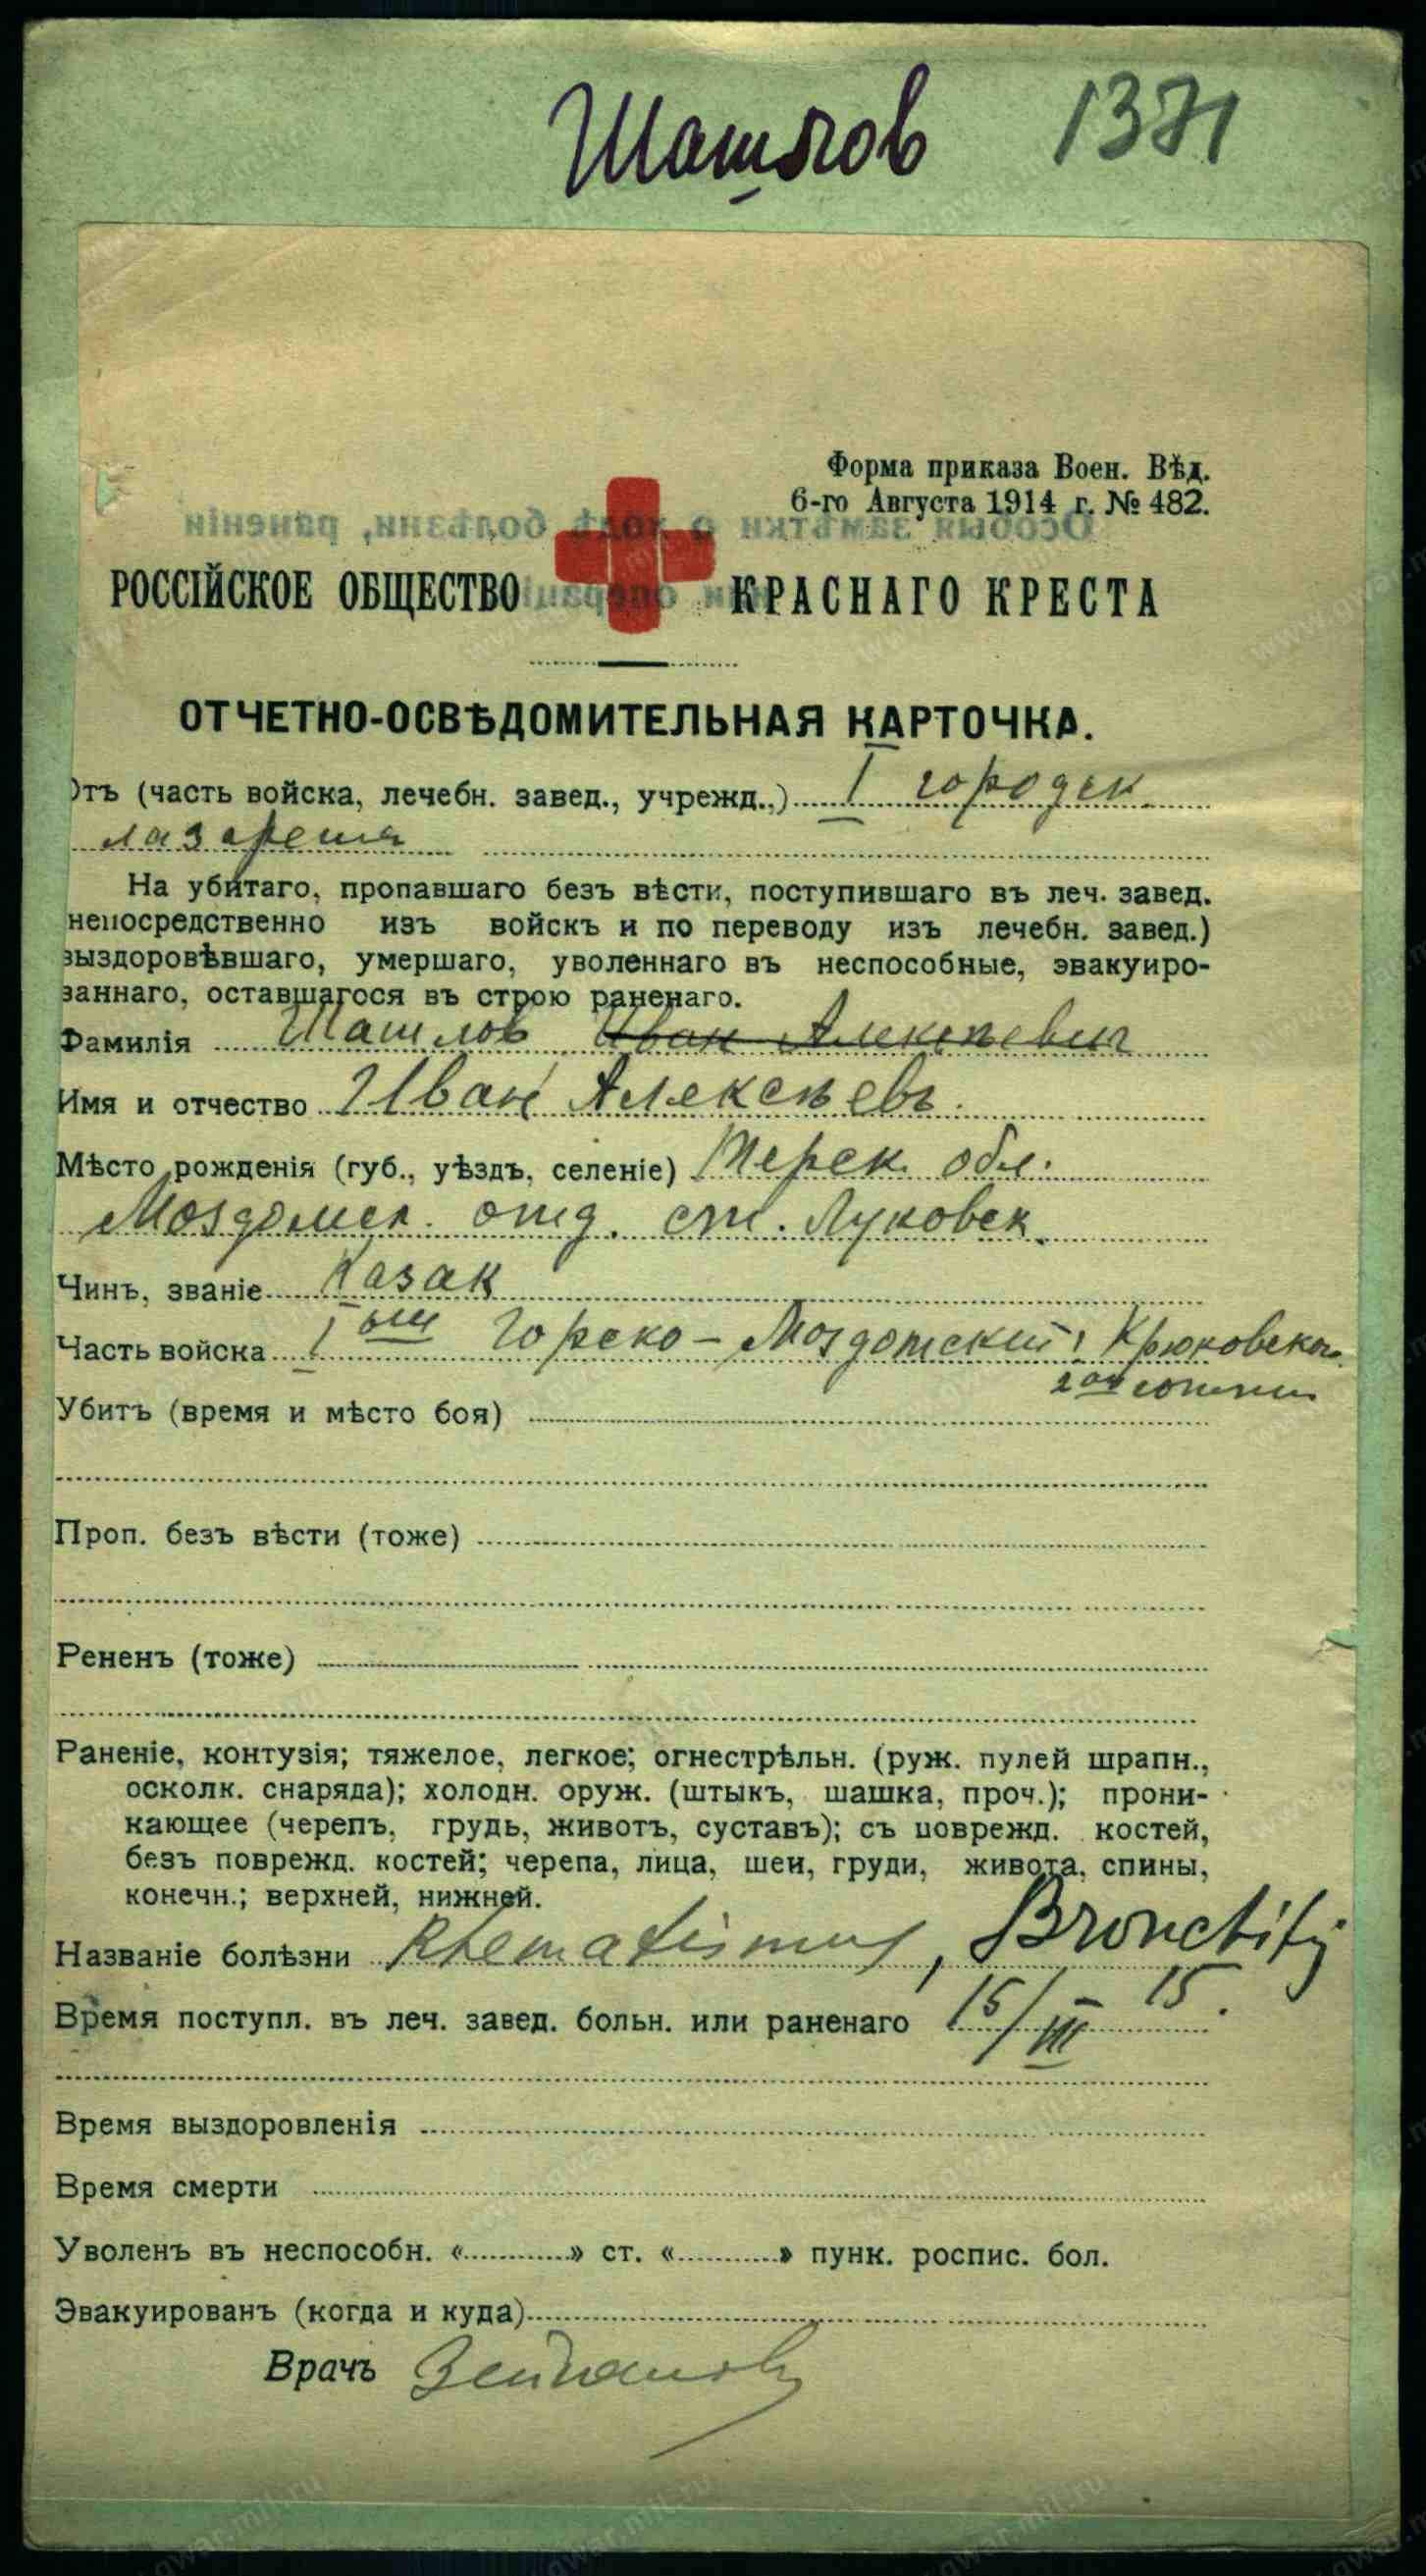 Шашлов 1371
Форма приказа Воен. Вѣд.
6-го Августа 1914 г. № 482.
Особыя замѣтки о ходѣ болѣзни, раненiи
или операцiи
РОССIЙСКОЕ ОБЩЕСТВО КРАСНАГО КРЕСТА
ОТЧЕТНО-ОСВѢДОМИТЕЛЬНАЯ КАРТОЧКА.
Отъ (часть войска, лечебн. завед., учрежд.,) I городск.
лазарета
На убитаго, пропавшаго безъ вѣсти, поступившаго въ леч. завед.
непосредственно изъ войскъ и по переводу изъ лечебн. завед.)
выздоровѣвшаго, умершаго, уволеннаго въ неспособные, эвакуиро-
ваннаго, оставшагося въ строю раненаго.
Фамилiя Шашлов Иван Алексѣевич
Имя и отчество Иван Алексѣевъ.
Мѣсто рожденiя (губ., уѣздъ, селенiе) Терек. обл.
Моздокск. отд. ст. Луковск.
Чинъ, званiе Казак
Часть войска 1ый Горско-Моздокский Крюковского
2ой сотни
Убитъ (время и мѣсто боя)
Проп. безъ вѣсти (тоже)
Рененъ (тоже)
Раненiе, контузiя; тяжелое, легкое; огнестрѣльн. (руж. пулей шрапн.,
осколк. снаряда); холодн. оруж. (штыкъ, шашка, проч.); прони-
кающее (черепъ, грудь, животъ, суставъ); съ поврежд. костей,
безъ поврежд. костей; черепа, лица, шеи, груди, живота, спины,
конечн.; верхней, нижней.
Названiе болѣзни Rhematismus, Bronchitis
Время поступл. въ леч. завед. больн. или раненаго 15/III 15.
Время выздоровленiя
Время смерти
Уволенъ въ неспособн. «» ст. «» пунк. роспис. бол.
Эвакуированъ (когда и куда)
Врачъ